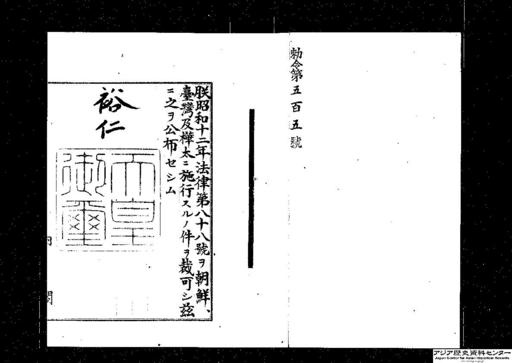 勅令第五百五號
朕昭和十二年法律第八十八號ヲ朝鮮、
臺灣及樺太ニ施行スルノ件ヲ裁可シ茲
ニ之ヲ公布セシム
裕仁
天皇
御璽
内閣
アジア歴史資料センター
Japan Center for Asian Historical Records